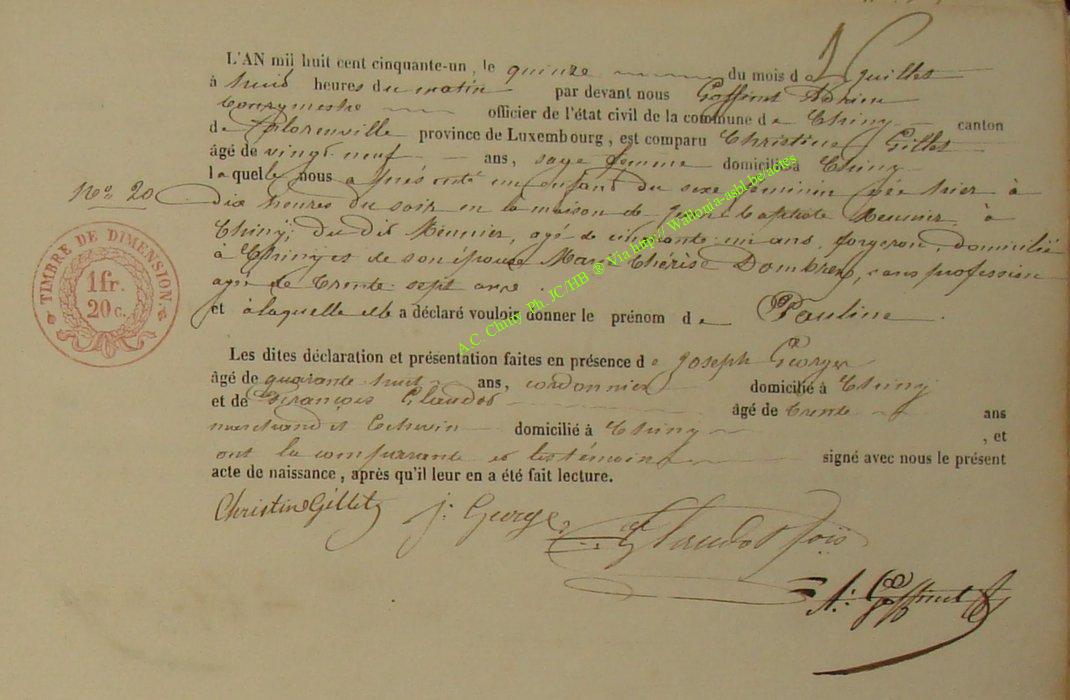 L'AN mil huit cent cinquante-un, le quinze du mois de Juillet
à huit heures du matin par devant nous Goffinet Adrien
bourgmestre officier de l'état civil de la commune de Chiny canton
de Florenville province de Luxembourg, est comparu Christine Gillet
âgé de vingt neuf ans, sage femme domicilié à Chiny
laquelle nous a présenté un enfant du sexe féminin née hier à
No 20
dix heures du soir en la maison de Jean Baptiste Meunier à
Chiny, du dit Meunier, agé de cinquante un ans, forgeron, domicilié
à Chiny et de son épouse Marie Thérèse sans profession
agée de trente sept ans.
et à laquelle elle a déclaré vouloir donner le prénom de Pauline.
TIMBRE DE DIMENSION.
1fr.
20c.
Les dites déclaration et présentation faites en présence de Joseph George
âgé de quarante huit ans, cordonnier domicilié à Chiny
et de François Claudot âgé de trente ans
marchand et Echevin domicilié à Chiny
, et
ont la comparante et les témoins signé avec nous le présent
acte de naissance, après qu'il leur en a été fait lecture.
Christine Gillet J: George Claudot fçois
A: Goffinet
A.C. Chiny Ph. JC/HB ® Via http:// Wallonia-asbl.be/actes